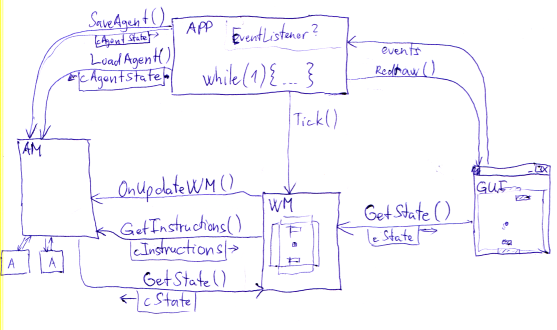 SaveAgent()
cAgentState
LoadAgent()
cAgentState
APP
EventListener?
while(1){...}
events
Redraw()
Tick()
AM
A
A
OnUpdateWM()
GetInstructions()
cInstructions
GetState()
cState
WM
GetState()
cState
GUI